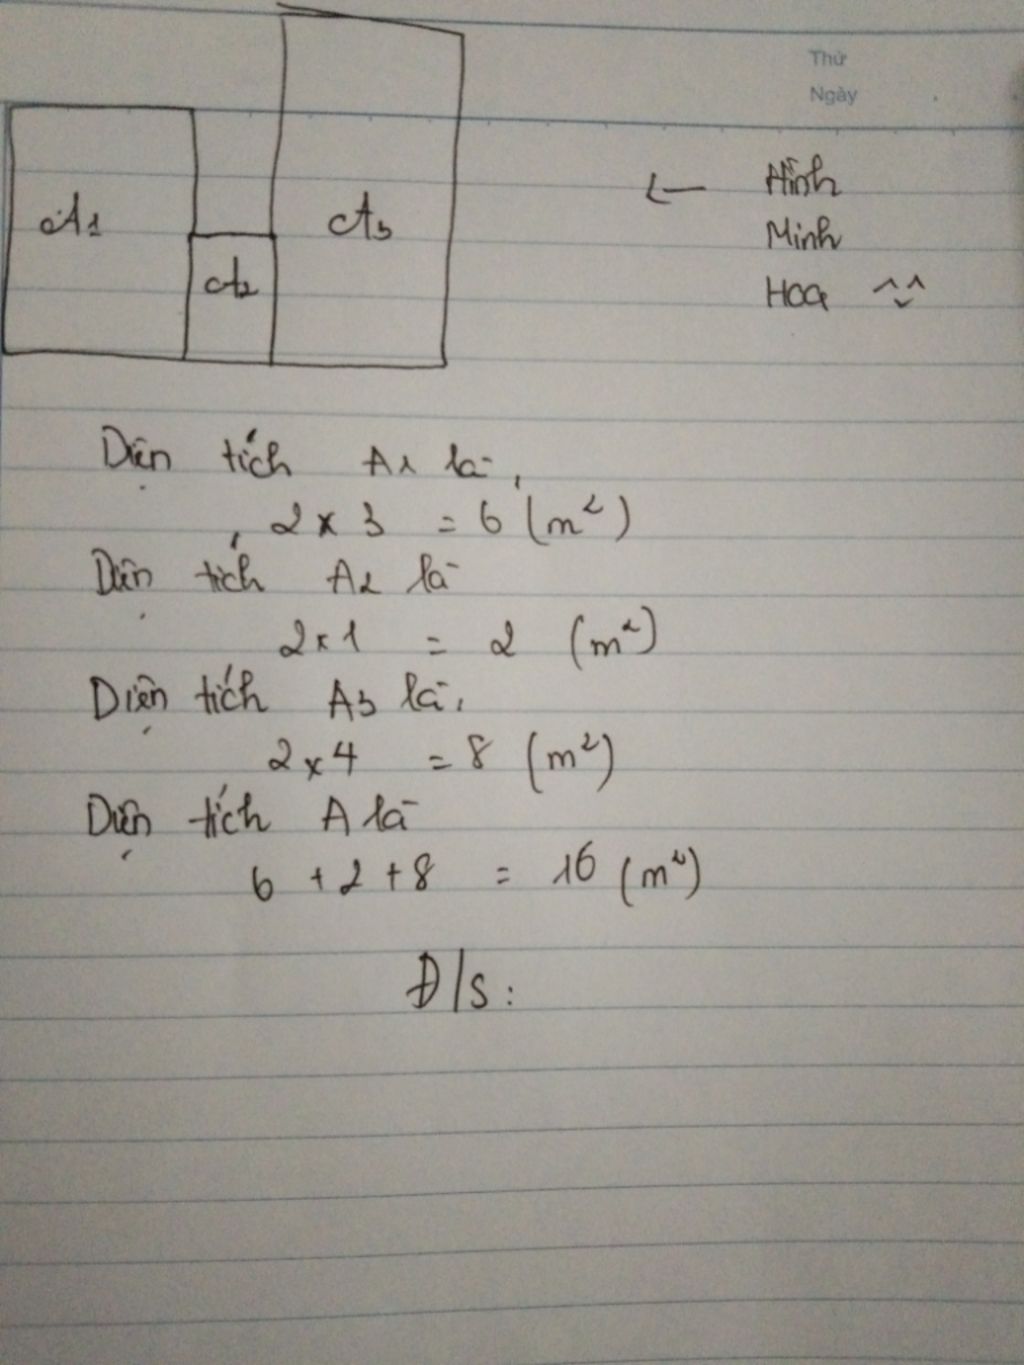 Thứ
Ngày
A1
A2
A3
← Hình
Minh
Hoạ ^^
Diện tích A1 là,
2 x 3 = 6 (m²)
Diện tích A2 là
2 x 1 = 2 (m²)
Diện tích A3 là,
2 x 4 = 8 (m²)
Diện tích A là
6 + 2 + 8 = 16 (m²)
Đ/S: